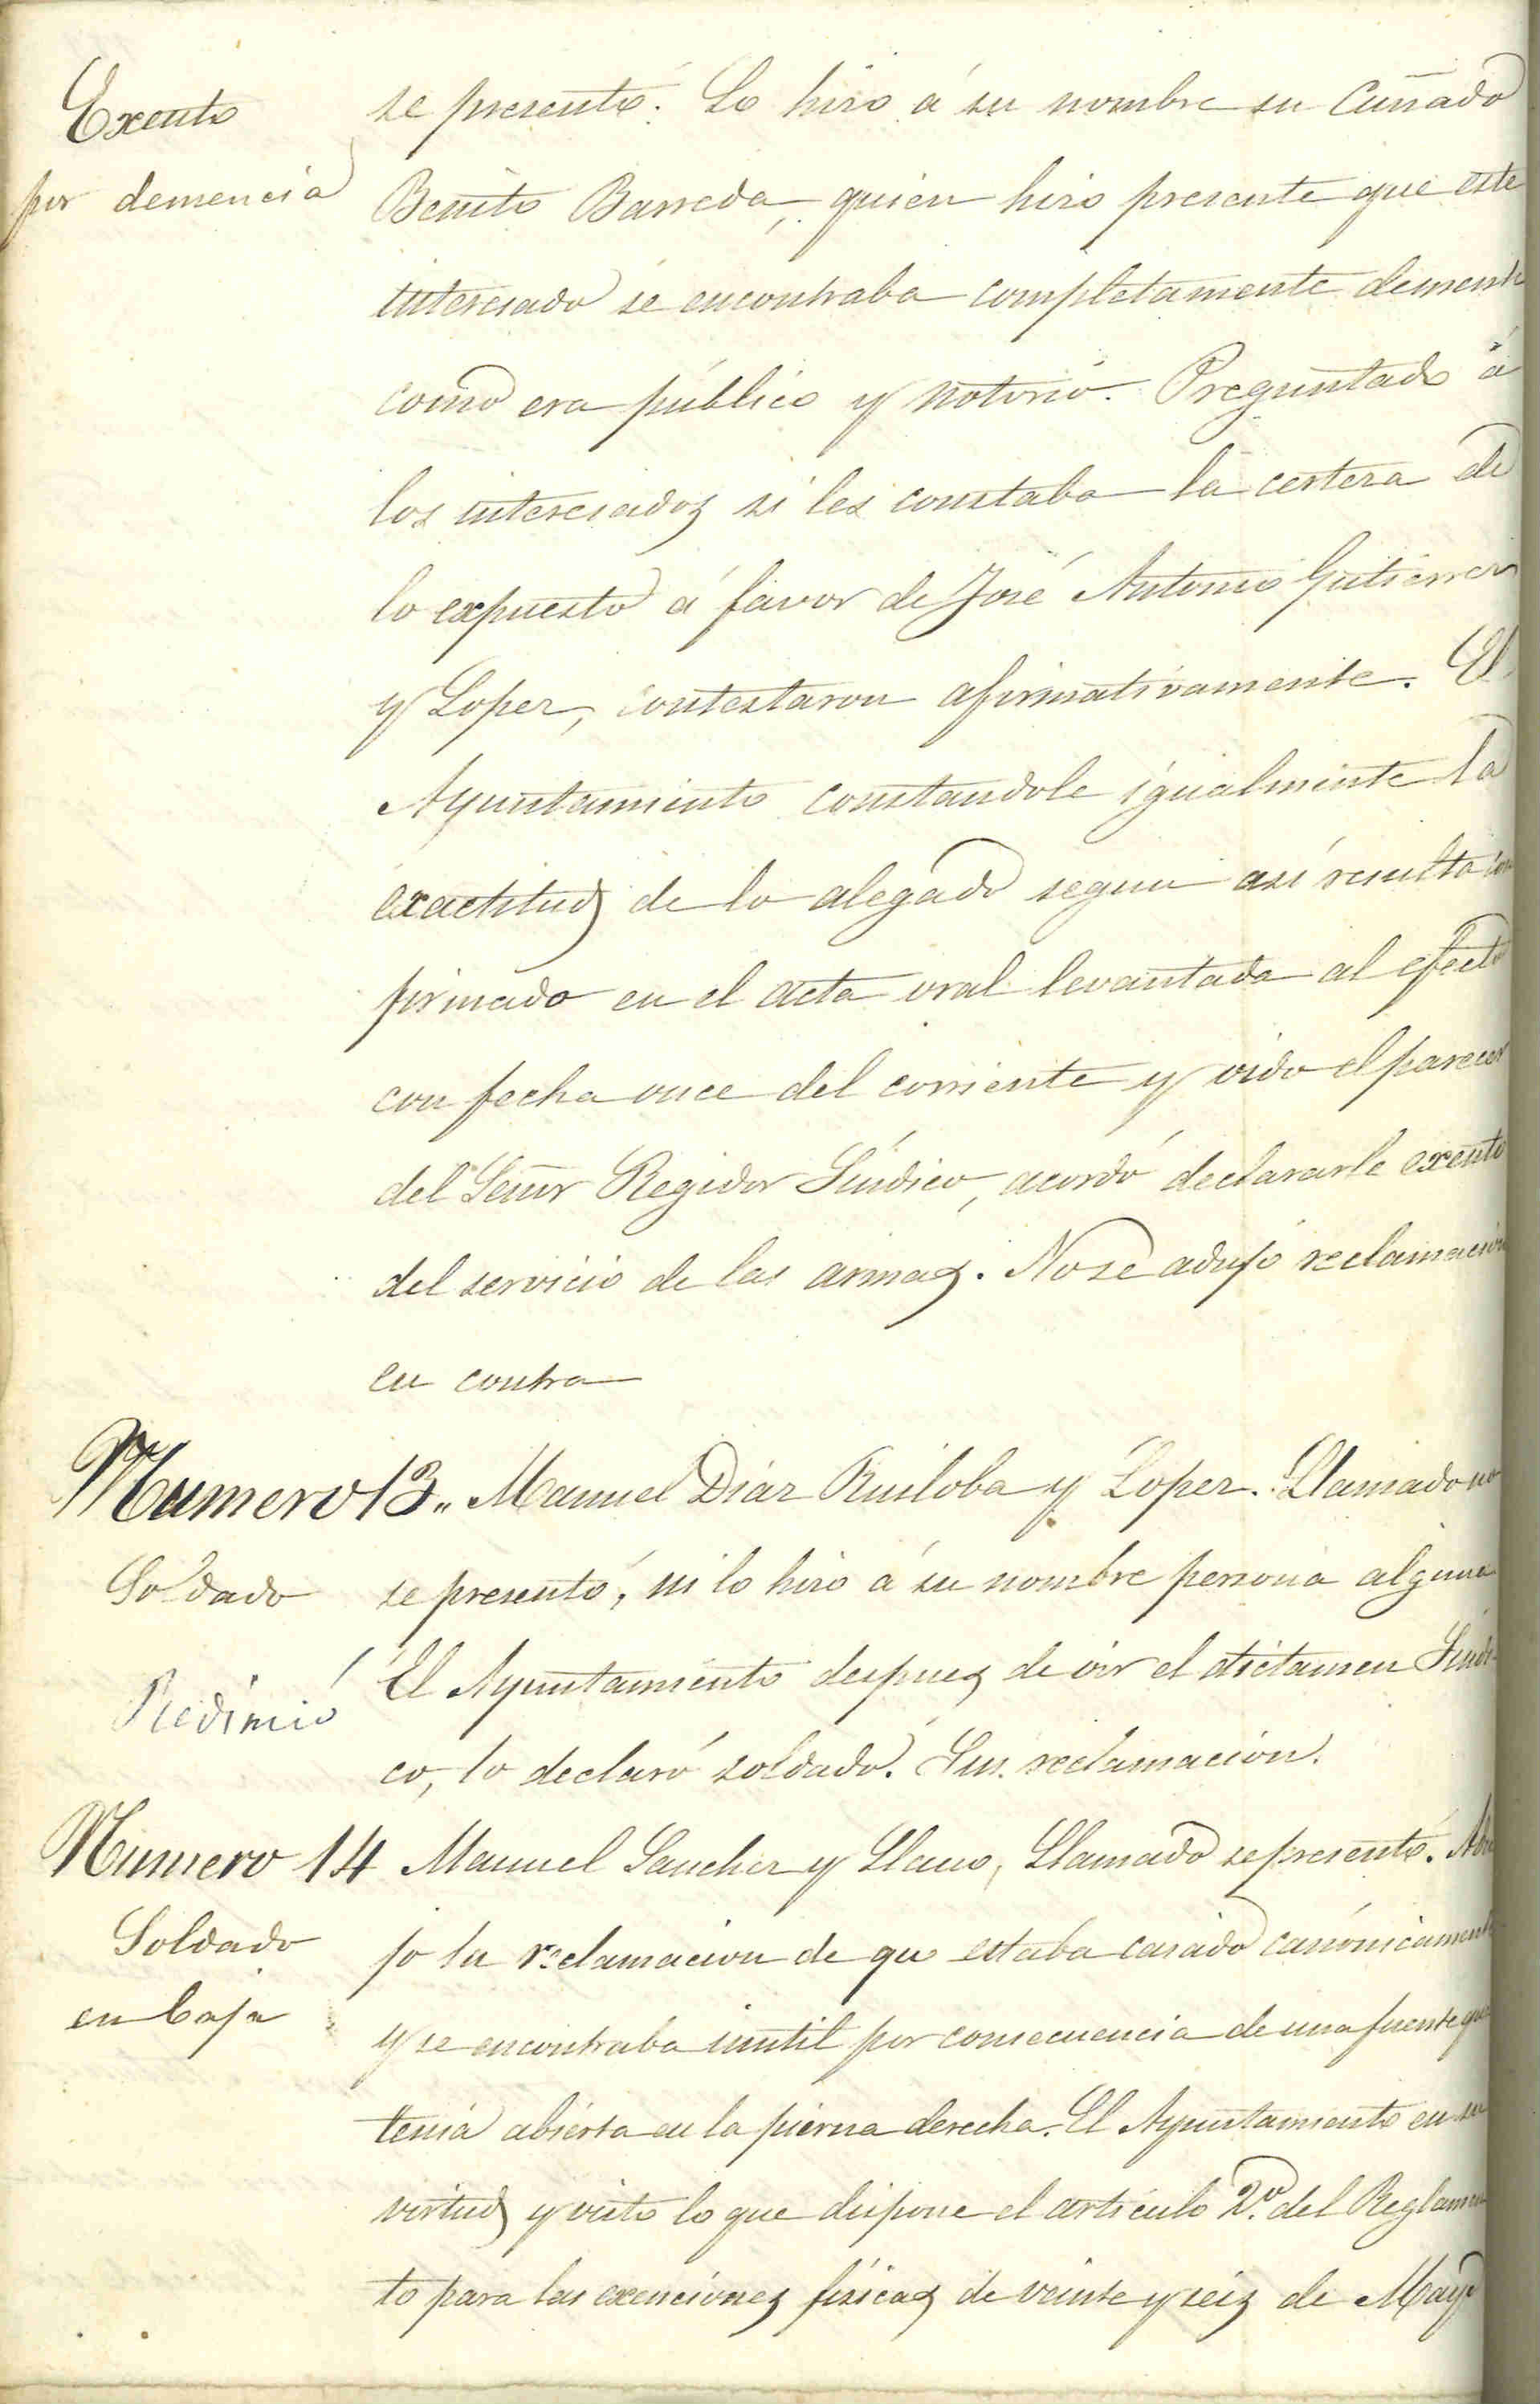 Exento
por demencia
se presentó. Lo hizo á su nombre su Cuñado
Benito Barreda, quien hizo presente que este
interesado se encontraba completamente demente
como era público y notorio. Preguntado á
los interesados si les constaba la certeza de
lo expuesto á favor de José Antonio Gutierrez
y Lopez, contestaron afirmativamente. El
Ayuntamiento constandole igualmente la
exactitud de lo alegado segun así resulta con
firmado en el acta oral levantada al efecto
con fecha once del corriente y oido el parecer
del Señor Regidor Síndico, acordó declararle exento
del servicio de las armas. No se adujo reclamación
en contra
Numero 13. Manuel Díaz Ruiloba y Lopez. Llamado no
Soldado
se presentó, ni lo hizo á su nombre persona alguna
Redimió
El Ayuntamiento despues de oir el dictamen Síndi
co, lo declaró soldado. Sin reclamación.
Numero 14 Manuel Sanchez y Llano, Llamado se presentó. Adu
Soldado
en Caja
jo la reclamacion de que estaba casado canónicamente
y se encontraba inutil por consecuencia de una fuente que
tenía abierta en la pierna derecha. El Ayuntamiento en su
virtud y visto lo que dispone el artículo 2º. del Reglamen
to para las exenciones físicas de veinte y seis de Mayo